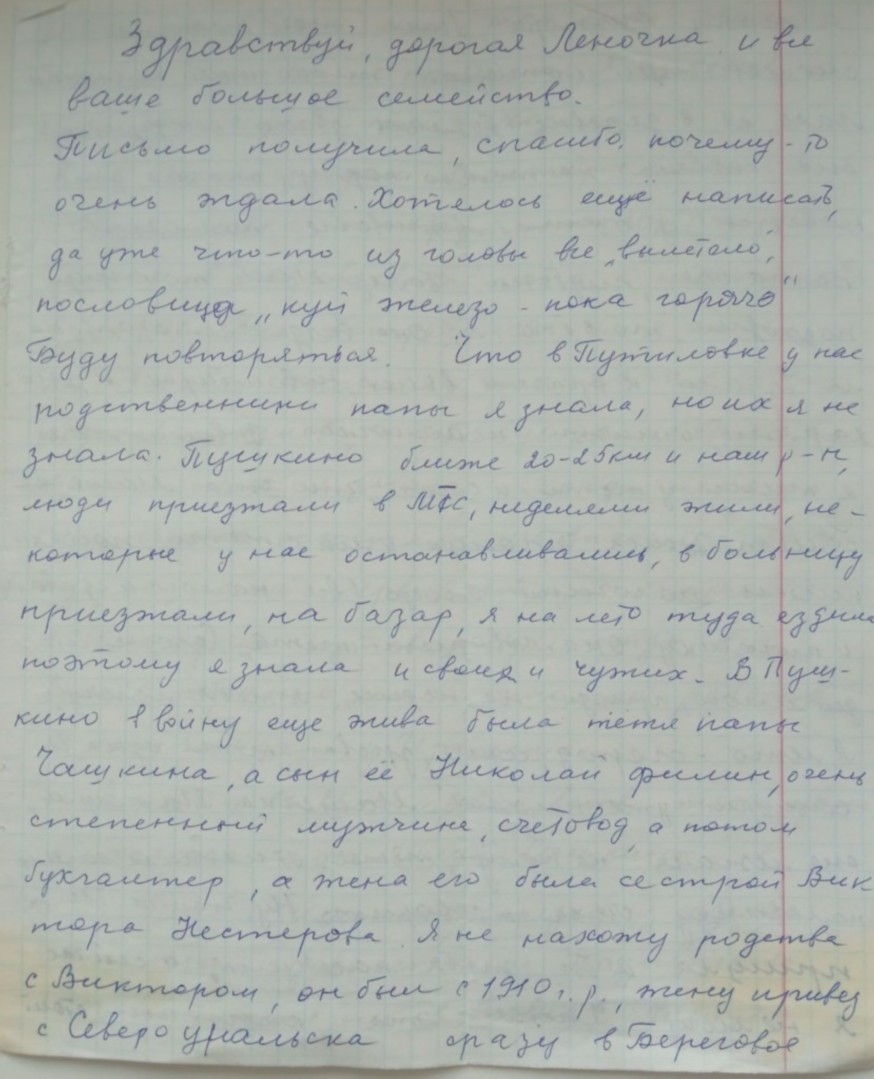 Здравствуй, дорогая Леночка и все
ваше большое семейство.
Письмо получила, спасибо, почему-то
очень ждала. Хотелось ещё написать,
да уже что-то из головы все „вылетело",
пословица „куй железо - пока горячо"
Буду повторяться. Что в Путиловке у нас
родственники папы я знала, но их я не
знала. Пушкино ближе 20-25км и наш р-н,
люди приезжали в МТС, неделями жили, не-
которые у нас останавливались, в больницу
приезжали, на базар, я на лето туда ездила
поэтому я знала и своих и чужих. В Пуш-
кино в войну еще жива была тетя папы
Чашкина, а сын её Николай Филин, очень
степенный мужчина, счетовод, а потом
бухгалтер, а жена его была сестрой Вик-
тора Нестерова. Я не нахожу родства
с Виктором, он был с 1910 г.р., жену привез
с Североуральска сразу в Береговое